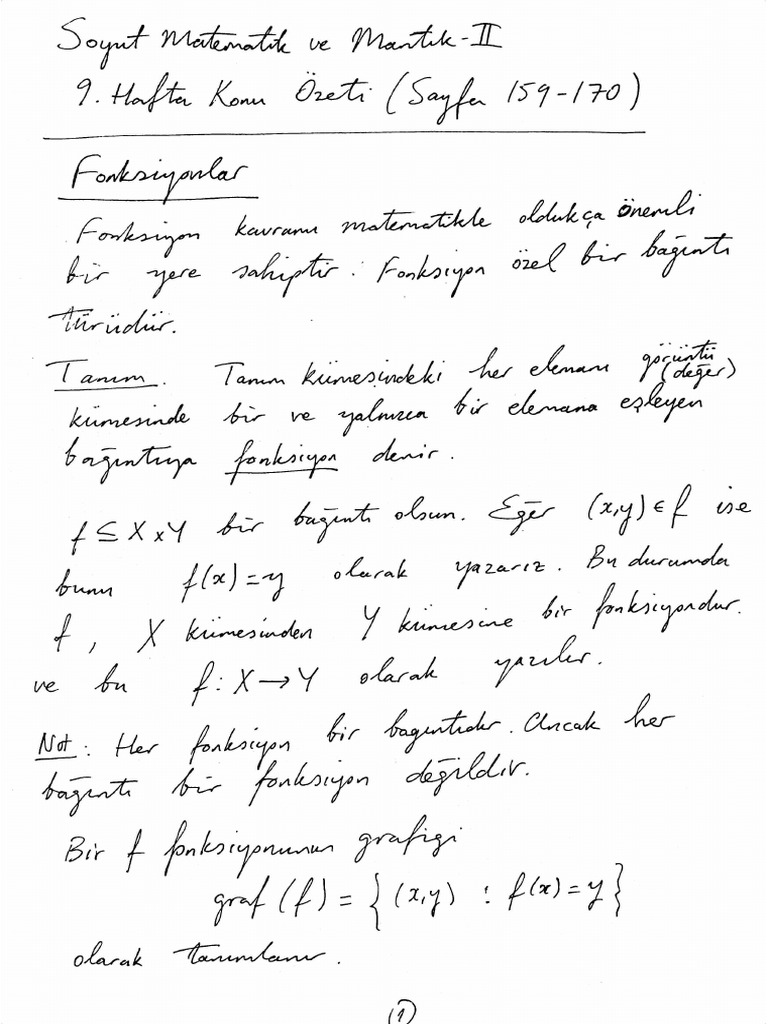 Soyut Matematik ve Mantık-II
9. Hafta Konu Özeti (Sayfa 159-170)
Fonksiyonlar
Fonksiyon kavramı matematikte oldukça önemli
bir yere sahiptir. Fonksiyon özel bir bağıntı
türüdür.
Tanım. Tanım kümesindeki her elemanı görüntü (değer)
kümesinde bir ve yalnızca bir elemana eşleyen
bağıntıya fonksiyon denir.
f ⊆ X x Y bir bağıntı olsun. Eğer (x,y) ∈ f ise
bunu f(x) = y olarak yazarız. Bu durumda
f, X kümesinden Y kümesine bir fonksiyondur.
ve bu f: X → Y olarak yazılır.
Not: Her fonksiyon bir bagıntıdır. Ancak her
bağıntı bir fonksiyon değildir.
Bir f fonksiyonunun grafigi
graf (f) = { (x,y) : f(x) = y }
olarak tanımlanır.
(1)